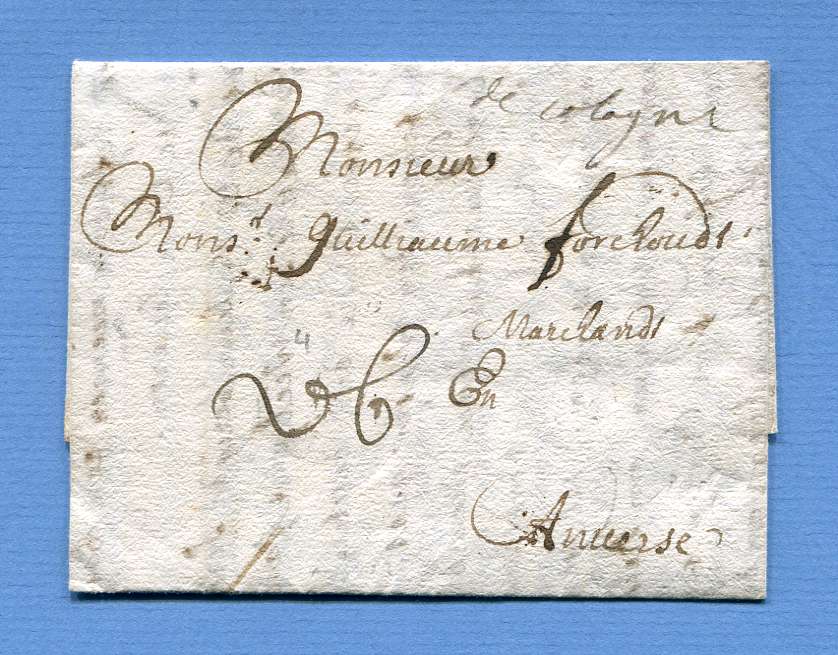 de cologne
Monsieur
Mons.r guilliaume forchoudt
Marchandt
4
En
Anuerse